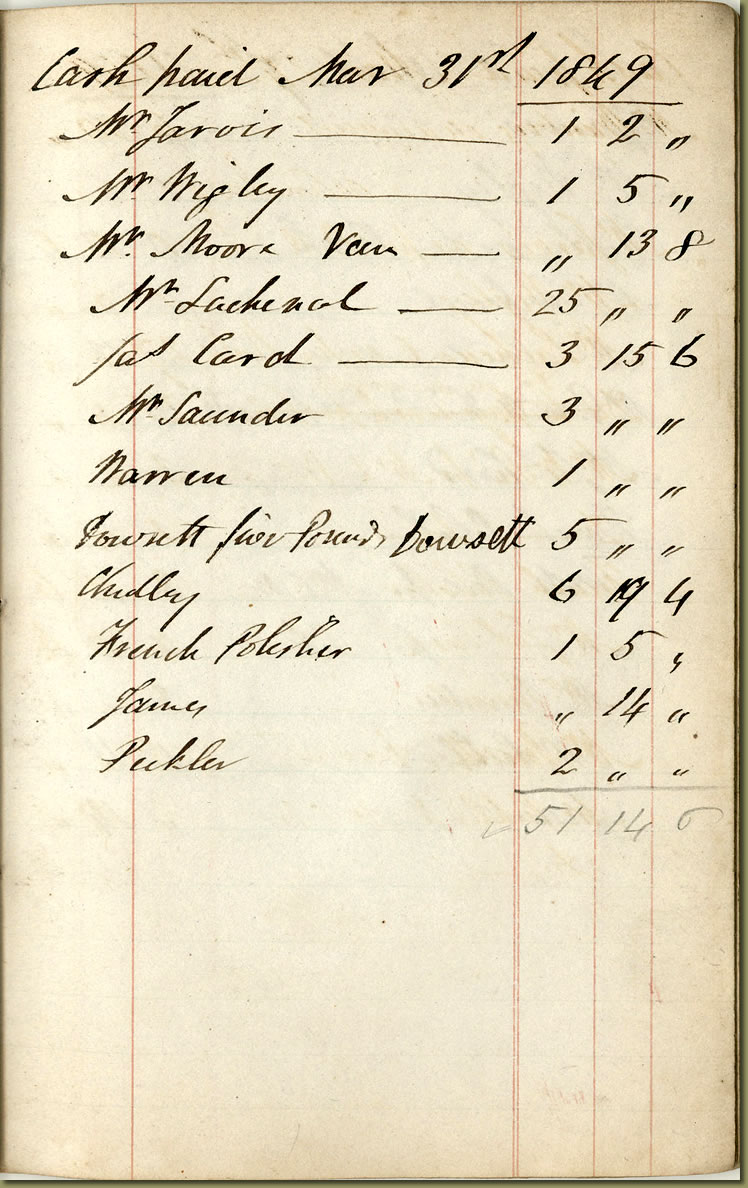 Cash paid Mar 31st 1849
Mr Jarvis 1 2 "
Mr Wigley 1 5 "
Mr. Moore Van " 13 8
Mr Lachenal 25 " "
Jas Card 3 15 6
Mr Saunder 3 " "
Warren 1 " "
Dowsett five Pounds Dowsett 5 " "
Chidley 6 19 4
French Polisher 1 5 "
James " 14 "
Peckler 2 " "
51 14 6